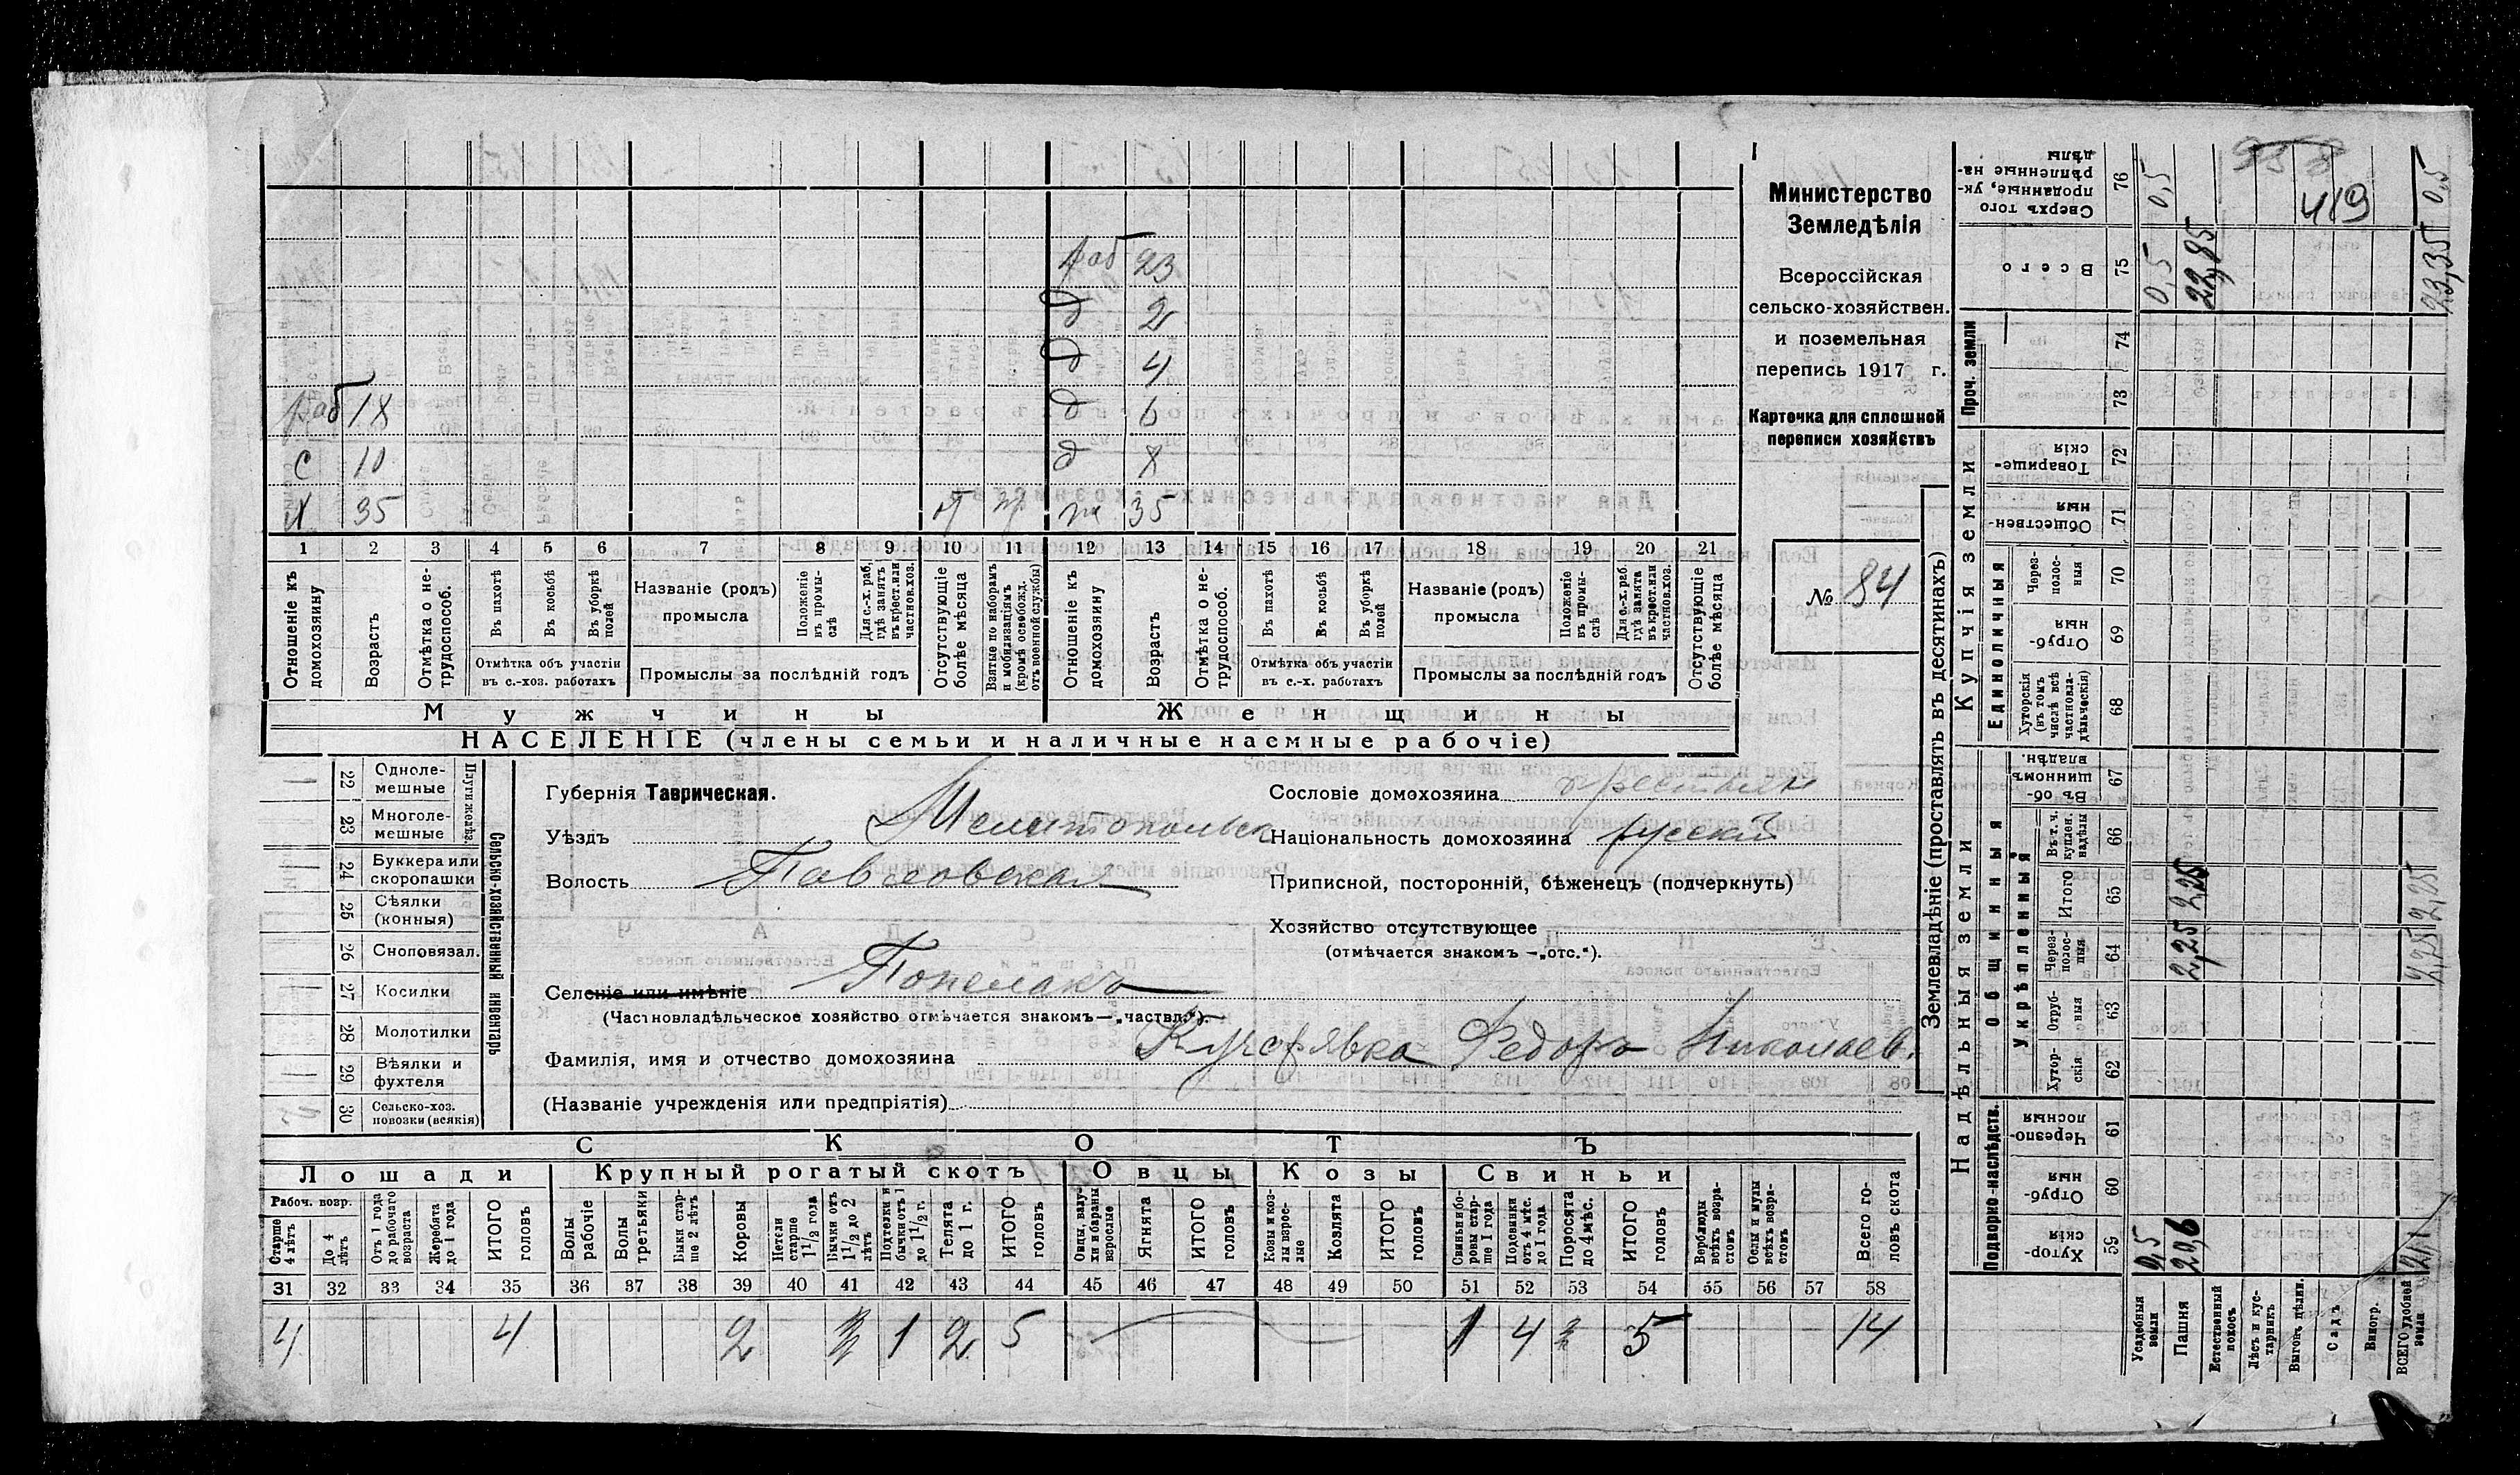 Министерство
Земледѣлія
Всероссійская
сельско-хозяйствен.
и поземельная
перепись 1917 г.
Карточка для сплошной
переписи хозяйствъ
№ 84
раб 23
д 2
д 4
раб 18 д 6
с 10 д 8
х 35 ж 35
1 2 3 4 5 6 7 8 9 10 11 12 13 14 15 16 17 18 19 20 21
Отношеніе къ домохозяину
Возрастъ
Отмѣтка о нетрудоспособ.
Въ пахотѣ
Въ косьбѣ
Въ уборкѣ полей
Отмѣтка объ участіи въ с.-хоз. работахъ
Названіе (родъ) промысла
Положеніе въ промыслѣ
Для с.-х. раб. гдѣ занятъ въ крест. или частнов. хоз.
Промыслы за послѣдній годъ
Отсутствующіе болѣе мѣсяца
Взятые по наборамъ и мобилизаціямъ (кромѣ освобожд. отъ военной службы)
Отношеніе къ домохозяину
Возрастъ
Отмѣтка о нетрудоспособ.
Въ пахотѣ
Въ косьбѣ
Въ уборкѣ полей
Отмѣтка объ участіи въ с.-х. работахъ
Названіе (родъ) промысла
Положеніе въ промыслѣ
Для с.-х. раб. гдѣ занята въ крест. или частнов. хоз.
Промыслы за послѣдній годъ
Отсутствующіе болѣе мѣсяца
Мужчины Женщины
НАСЕЛЕНІЕ (члены семьи и наличные наемные рабочіе)
Сельско-хозяйственный инвентарь
Плуги желѣз.
22 Однолемешные
23 Многолемешные
24 Буккера или скоропашки
25 Сѣялки (конныя)
26 Сноповязал.
27 Косилки
28 Молотилки
29 Вѣялки и фухтеля
30 Сельско-хоз. повозки (всякія)
Губернія Таврическая.
Уѣздъ Мелитопольск
Волость Павловская
Селеніе или имѣніе
(Частновладѣльческое хозяйство отмѣчается знакомъ—„частвл.“).
Фамилія, имя и отчество домохозяина Федоръ Николаев.
(Названіе учрежденія или предпріятія)
Сословіе домохозяина крестьян
Національность домохозяина русскій
Приписной, посторонній, бѣженецъ (подчеркнуть)
Хозяйство отсутствующее
(отмѣчается знакомъ —„отс.“).
СКОТЪ
Лошади Крупный рогатый скотъ Овцы Козы Свиньи
Рабоч. возр.
Старше 4 лѣтъ
До 4 лѣтъ
Отъ 1 года до рабочаго возраста
Жеребята до 1 года
ИТОГО головъ
Волы рабочіе
Волы третьяки
Быки старше 2 лѣтъ
Коровы
Нетели старше 1 1/2 года
Бычки отъ 1 1/2 до 2 лѣтъ
Подтелки и бычки отъ 1 до 1 1/2 г.
Телята до 1 г.
ИТОГО головъ
Овцы, валухи и бараны взрослые
Ягнята
ИТОГО головъ
Козы и козлы взрослые
Козлята
ИТОГО головъ
Свиньи боровы старше 1 года
Подсвинки отъ 4 мѣс. до 1 года
Поросята до 4 мѣс.
ИТОГО головъ
Верблюды всѣхъ возрастовъ
Ослы и мулы всѣхъ возрастовъ
Всего головъ скота
31 32 33 34 35 36 37 38 39 40 41 42 43 44 45 46 47 48 49 50 51 52 53 54 55 56 57 58
4 4 2 1 2 5 1 4 5 14
Землевладѣніе (проставлять въ десятинахъ)
Надѣльныя земли Купчія земли Проч. земли
Подворно-наслѣдств.
Общинныя
Укрѣпленныя
Единоличныя
59 Хуторскія
60 Отрубныя
61 Черезполосныя
62 Хуторскія
63 Отрубныя
64 Черезполосныя
65 Итого
66 Въ т. ч. куплен. надѣлы
67 Въ общинномъ владѣн.
68 Хуторскія (въ томъ числѣ всѣ частновладѣльческія)
69 Отрубныя
70 Черезполосныя
71 Общественныя
72 Товарищескія
73
74
75 Всего
76 Сверхъ того проданные, укрѣпленные надѣлы
Усадебныя земли 0,5 0,5 0,5
Пашня 20,6 2,25 2,25 22,85
Естественный покосъ
Лѣсъ и кустарникъ
Выгонъ дѣлин.
Садъ
Виногр.
ВСЕГО удобней земли 21,1 2,25 2,25 23,35 0,5
419